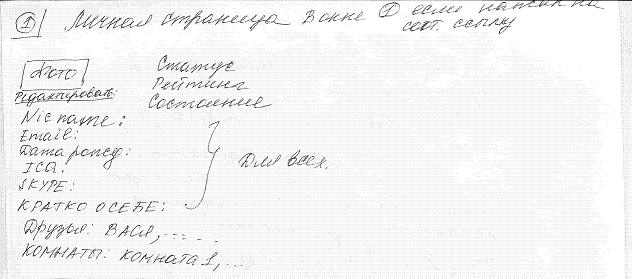 ① Личная страница в окне ① если нажали на
соот. ссылку
Фото
Статус
Редактировать:
Рейтинг
Состояние
Nic name:
Email:
Дата рожд:
ICQ:
SKYPE:
Для всех.
КРАТКО О СЕБЕ:
Друзья: ВАСЯ, ......
КОМНАТЫ: КОМНАТА 1, ...